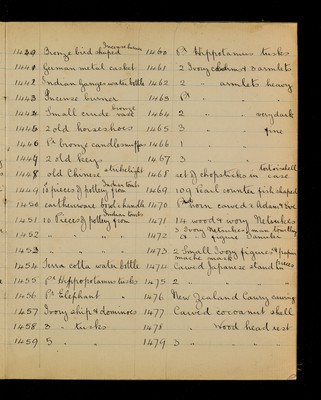 1440 Bronze bird shaped Incense burner
1441 German metal casket
1442 Indian Ganges water bottle
1443 Incense burner
1444 Small crude bronze vase
1445 2 old horseshoes
1446 Pr bronze candle snuffers
1447 2 old keys
1448 old Chinese strikelight
1449 10 pieces of pottery from Indian tombs
1450 earthenware bowl & handle
1451 10 Pieces of pottery from Indian tombs
1452 " " " "
1453 " " " "
1454 Terra cotta water bottle
1455 Pr Hippopotamus tusks
1456 Pr Elephant "
1457 Ivory ship & dominoes
1458 3 " tusks
1459 5 " "
1460 Pr Hippotamus tusks
1461 2 Ivory & 3 armlets
1462 2 " armlets heavy
1463 Pr " "
1464 2 " " very dark
1465 3 " " fine
1466 1 " "
1467 3 " "
1468 set of chopsticks in tortoiseshell case
1469 109 Pearl counter fish shaped
1470 Pr horn carved & Adam & Eve
1471 14 wood & ivory Netsukes
1472 3 Ivory Netsukes, man tortoise & figure
1473 2 Small Ivory figures & papier mache mask
1474 Carved Japanese stand
1475 2 " " "
1476 New Zealand Cowry carving
1477 Carved cocoanut shell
1478 " Wood head rest
1479 3 " " "